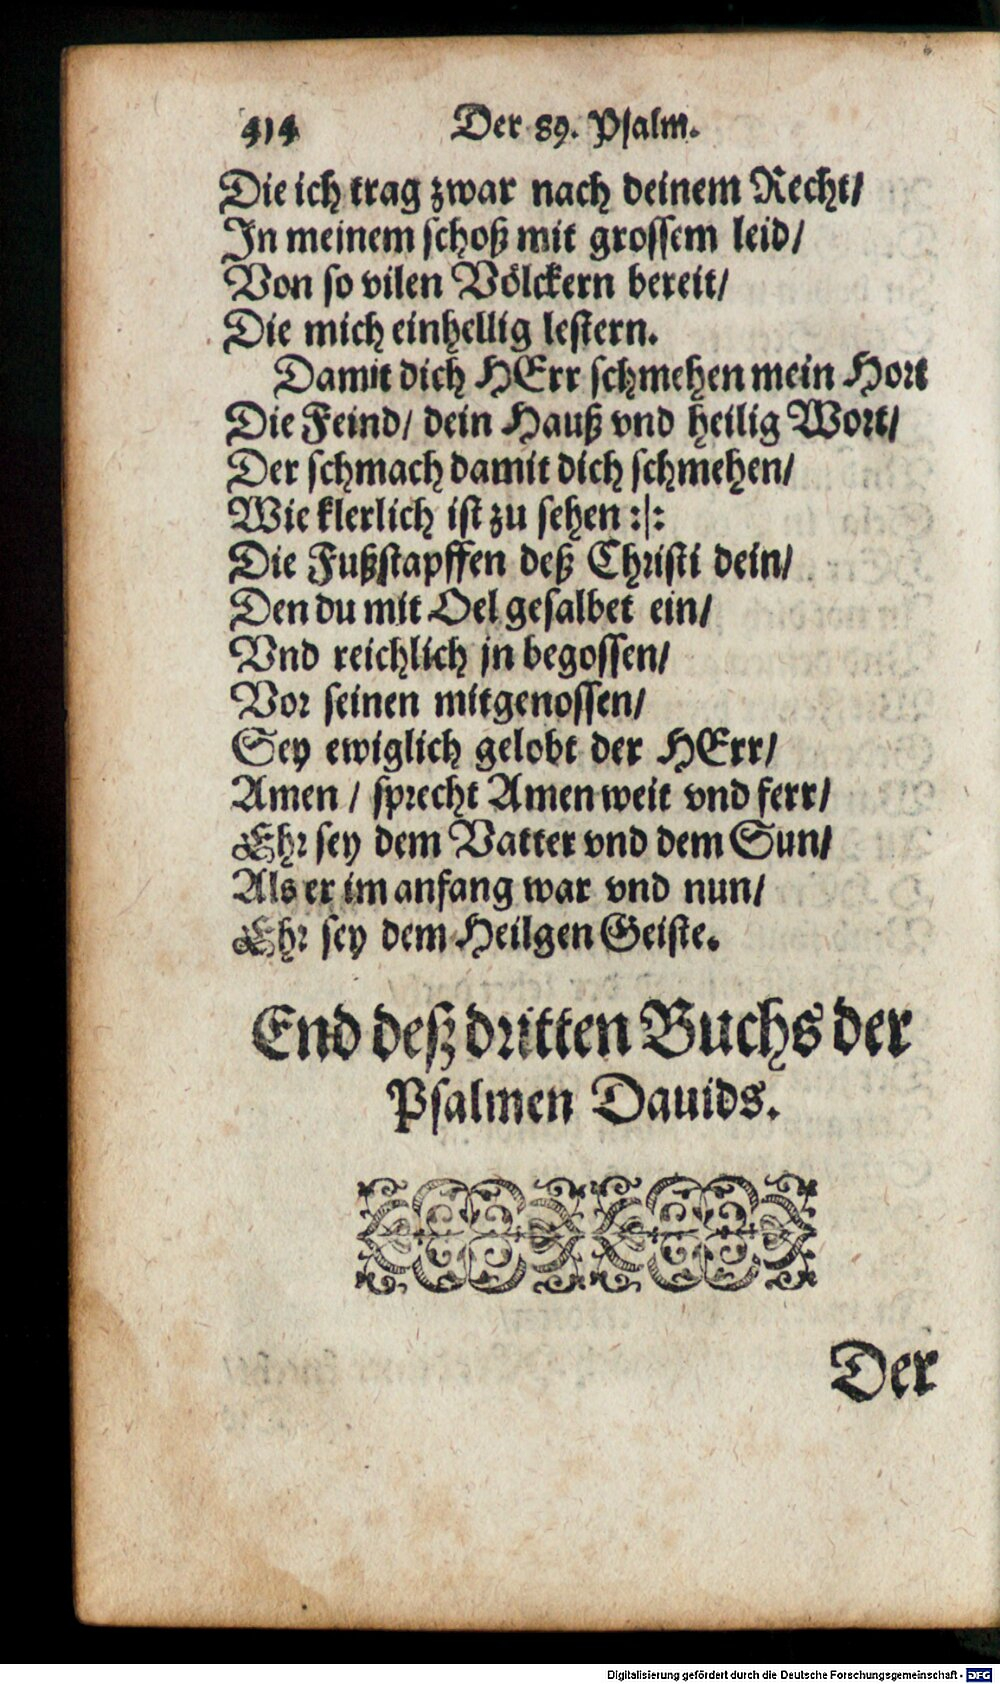 414 Der 89. Psalm.
Die ich trag zwar nach deinem Recht/
In meinem schoß mit grossem leid/
Von so vilen Völckern bereit/
Die mich einhellig lestern.
Damit dich HErr schmehen mein Hort
Die Feind/ dein Hauß vnd heilig Wort/
Der schmach damit dich schmehen/
Wie klerlich ist zu sehen :|:
Die Fußstapffen deß Christi dein/
Den du mit Oel gesalbet ein/
Vnd reichlich jn begossen/
Vor seinen mitgenossen/
Sey ewiglich gelobt der HErr/
Amen / sprecht Amen weit vnd ferr/
Ehr sey dem Vatter vnd dem Sun/
Als er im anfang war vnd nun/
Ehr sey dem Heilgen Geiste.
End deß dritten Buchs der
Psalmen Dauids.
Der
Digitalisierung gefördert durch die Deutsche Forschungsgemeinschaft - DFG